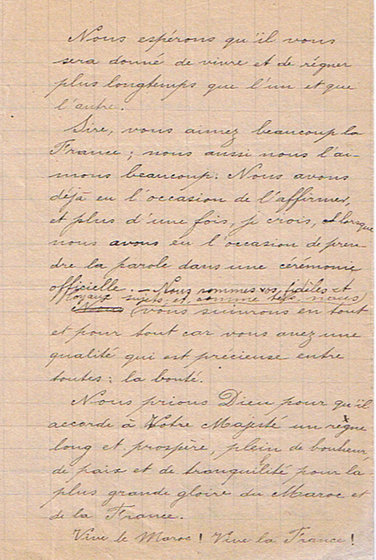 Nous espérons qu'il vous
sera donné de vivre et de régner
plus longtemps que l'un et que
l'autre.
Sire, vous aimez beaucoup la
France ; nous aussi nous l'ai-
mons beaucoup. Nous avons
déjà eu l'occasion de l'affirmer,
et plus d'une fois, je crois, lorsque
nous avons eu l'occasion de pren-
dre la parole dans une cérémonie
officielle. — Nous sommes vos fidèles et
loyaux sujets et comme tels nous
Nous (vous suivrons en tout
et pour tout car vous avez une
qualité qui est précieuse entre
toutes : la bonté.
Nous prions Dieu pour qu'il
accorde à Votre Majesté un règne
long et prospère, plein de bonheur,
de paix et de tranquilité pour la
plus grande gloire du Maroc et
de la France.
Vive le Maroc ! Vive la France !